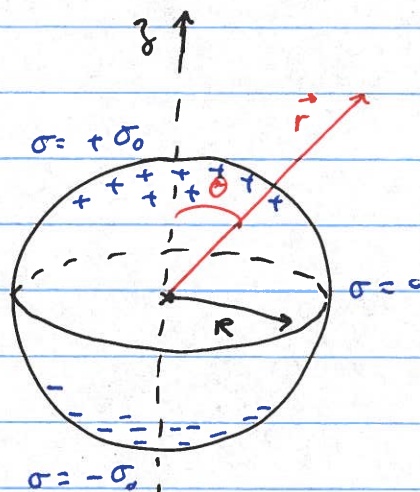 z
r
σ = + σ₀
θ
σ = 0
R
σ = - σ₀